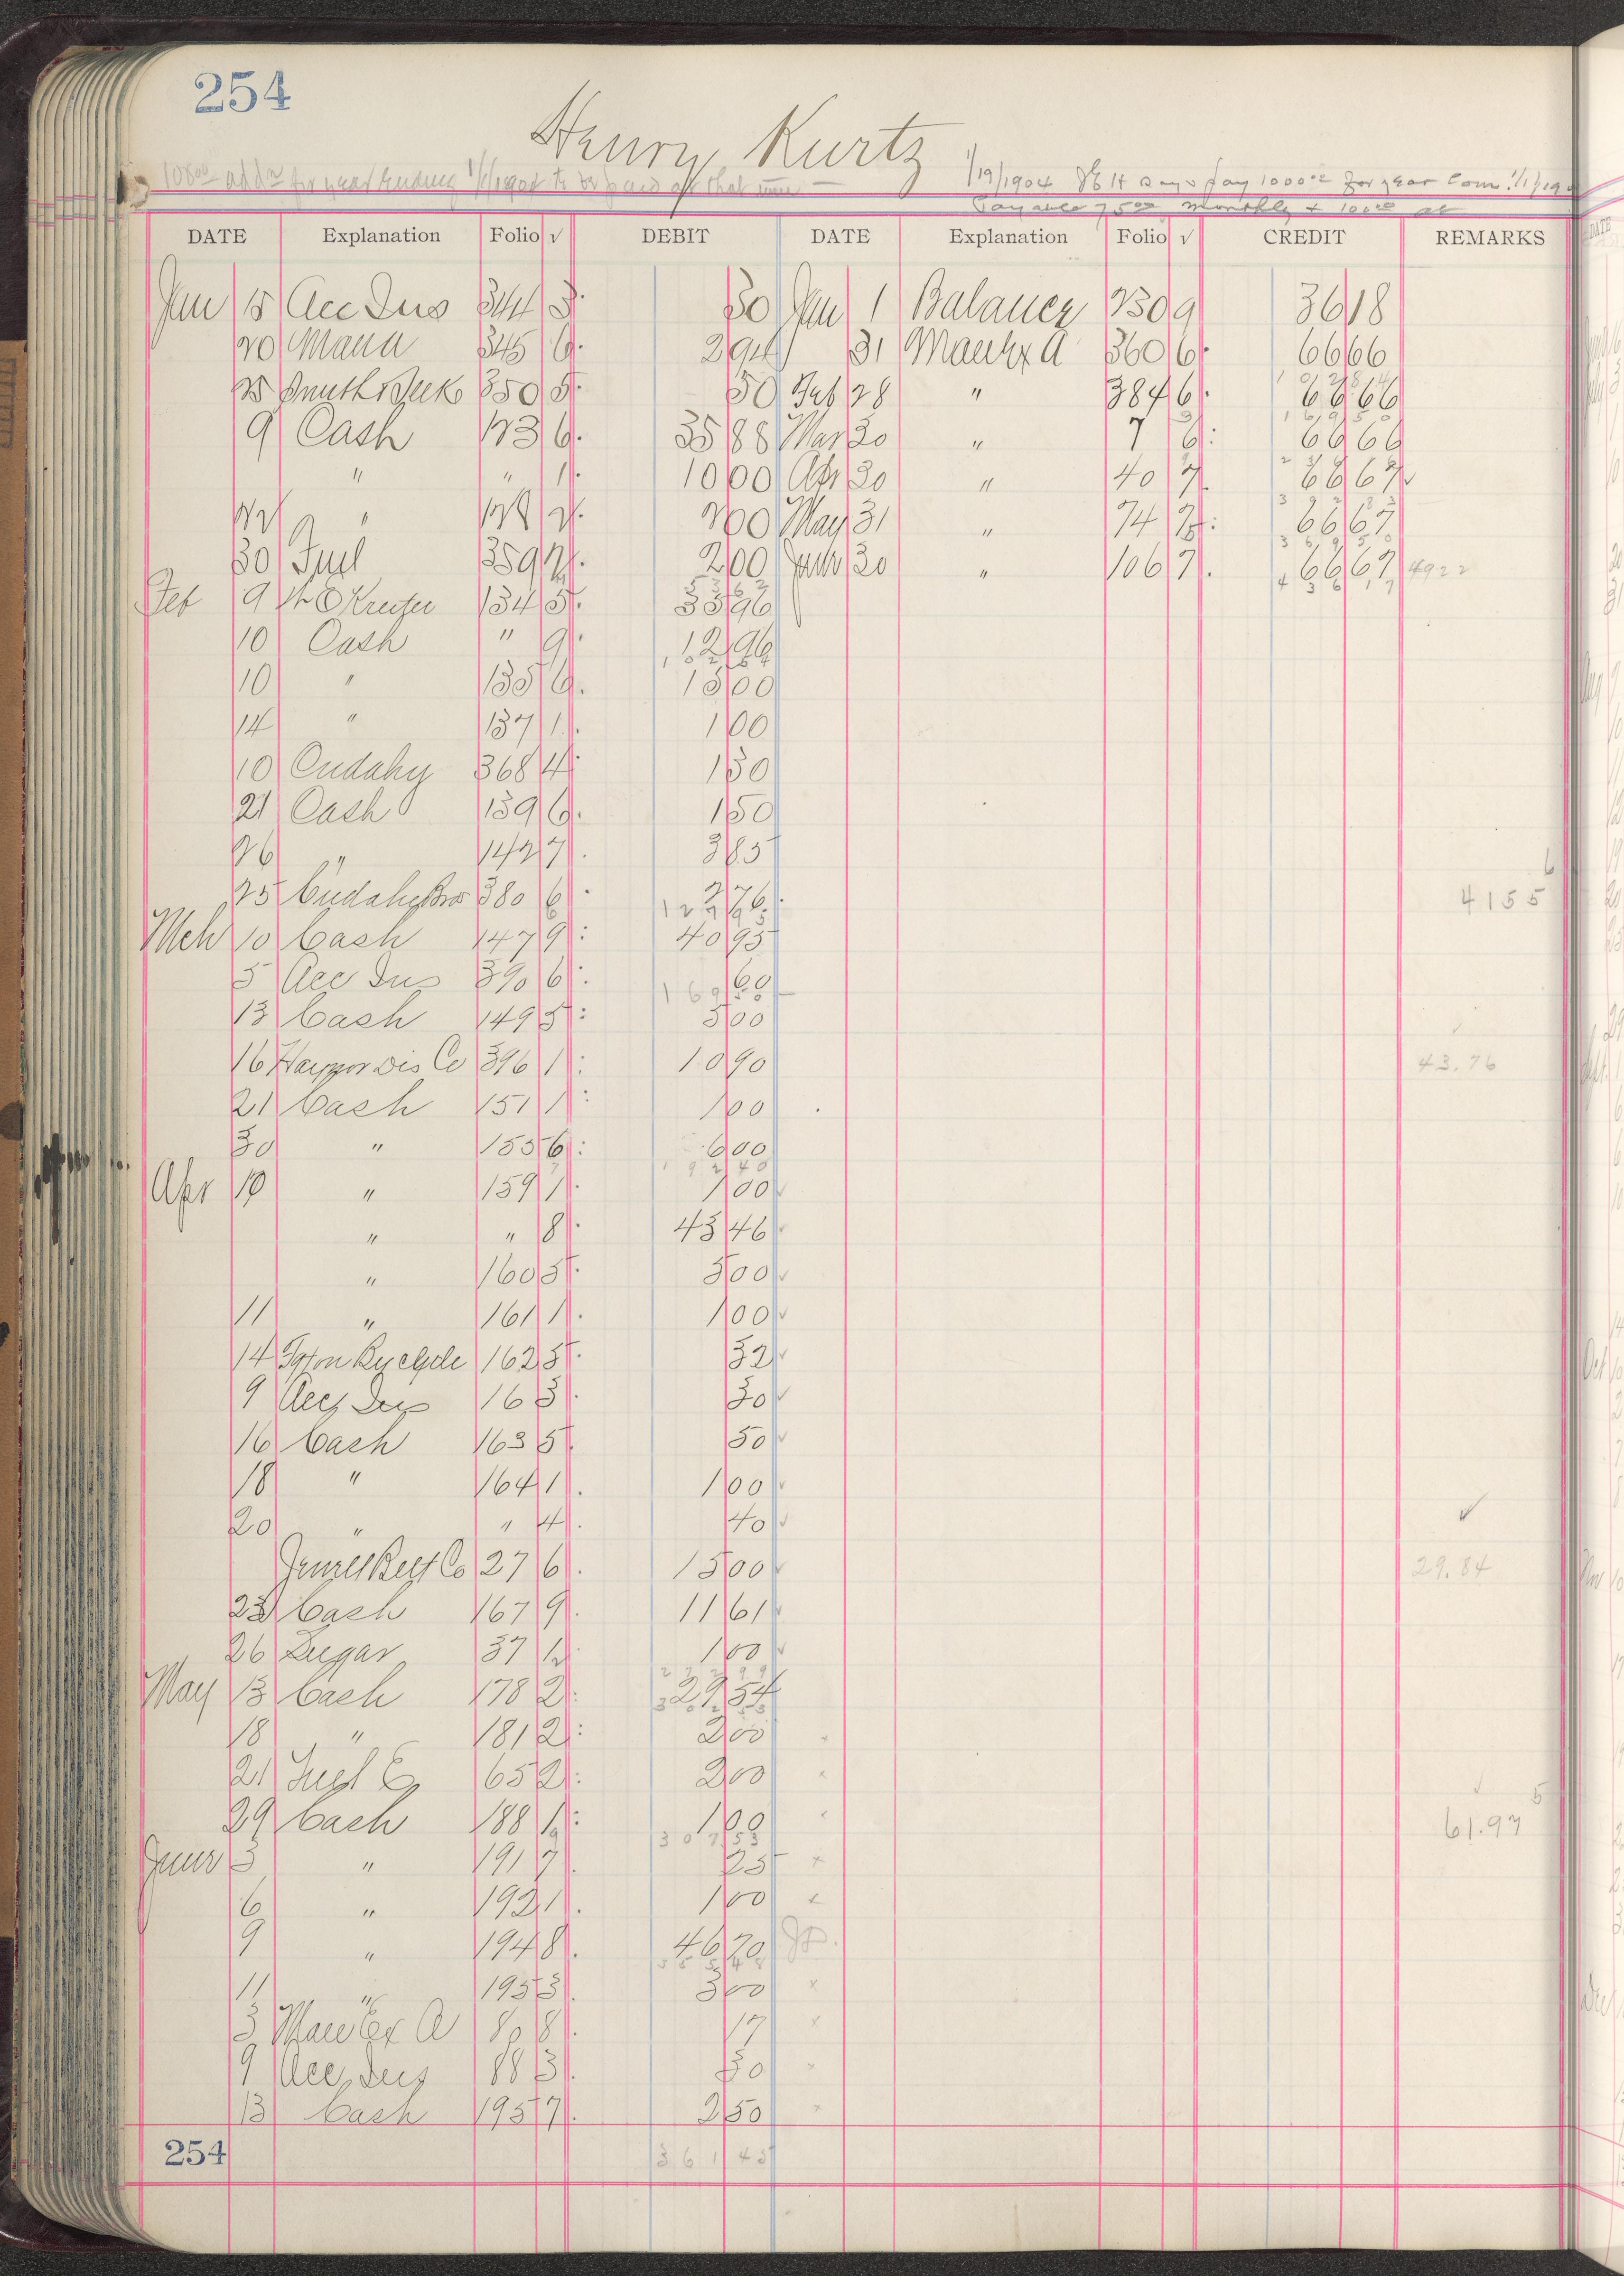 254
Henry Kurtz
1/19/1904 says pay 1000 00 for year Com. 1/1/190
Payable 75 00 monthly + 100 00 at
DATE Explanation Folio √ DEBIT DATE Explanation Folio √ CREDIT REMARKS
Jan 15 Acc Ins 344 3 30 Jan 1 Balance 230 9 36 18
20 Manu 345 6 2 94 31 Manu Ex A 360 6 66 66
25 350 5 50 Feb 28 " 384 6 66 66
9 Cash 123 6 35 88 Mar 30 " 7 6 66 66
" " 1 10 00 Apr 30 " 40 7 66 67
" 2 00 May 31 " 74 7 66 67
30 Fuel 359 2 2 00 June 30 " 106 7 66 67 4922
Feb 9 134 5 35 96
10 Cash " 9 12 96
10 " 135 6 15 00
14 " 137 1 1 00
10 Cudahy 368 4 1 50
21 Cash 139 6 1 50
26 " 142 7 3 85
25 Cudahy Bros 380 6 2 76
4155
Mch 10 Cash 147 9 40 95
5 Acc Ins 390 6 60
13 Cash 149 5 5 00
16 Dis Co 396 1 10 90 43.76
21 Cash 151 1 1 00
30 " 155 6 6 00
192 40
Apr 10 " 159 1 1 00
" " 8 43 46
" 160 5 5 00
11 " 161 1 1 00
14 162 5 32
9 Acc Ins 16 3 30
16 Cash 163 5 50
18 " 164 1 1 00
20 " " 4 40
Jewell Belt Co 27 6 15 00 29.84
23 Cash 167 9 11 61
26 Sugar 37 1 1 00
May 13 Cash 178 2 29 54
18 " 181 2 2 00
21 Fuel E 65 2 2 00
29 Cash 188 1 1 00 61.97
307 53
June 3 " 191 7 25
6 " 192 1 1 00
9 " 194 8 46 70
355 48
11 " 195 3 3 00
3 Manu Ex A 80 8 17
9 Acc Ins 88 3 30
13 Cash 195 7 2 50
254 361 45